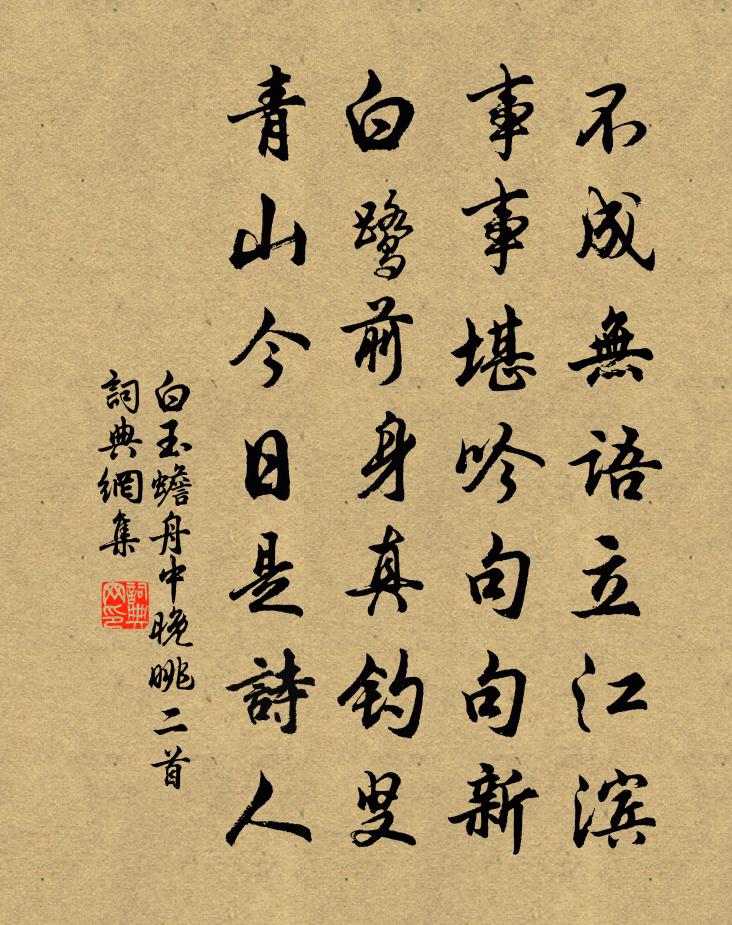 不成無語立江滨
事事堪吟句句新
白鹭前身真钓叟
青山今日是詩人
白玉蟾舟中晚眺二首
詞典網集
詞典网印